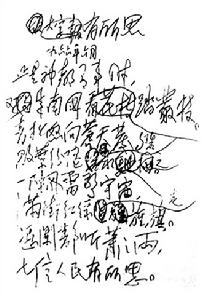 有所思
一九六六年六月
正是神都有事时，
来南国踏丛枝。
青松怒向苍天发，
败叶
一阵风雷惊宇宙，
满街红绿走旌旗。
凭阑静听萧萧雨，
七亿人民有所思。